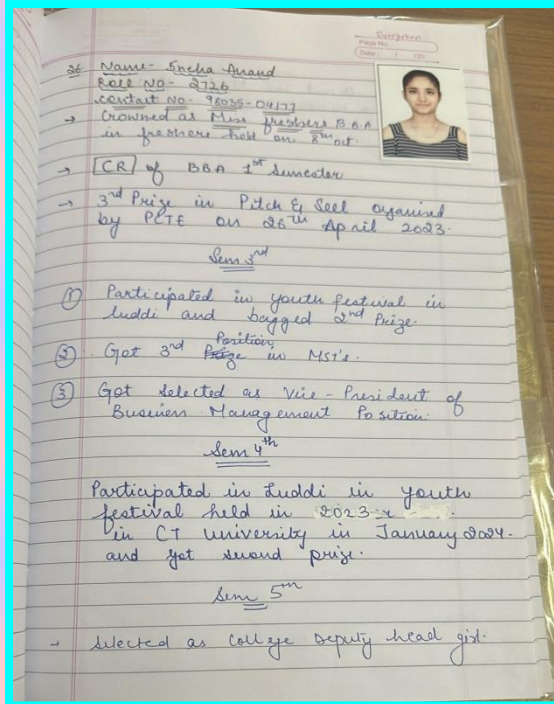 Evergreen
Page No.
Date: / /20
26 Name- Sneha Anand
Roll NO- 2726
contact No- 98035-04177
→ Crowned as Miss freshers B.B.A
in freshers held on, 8th oct.
→ [CR] of BBA 1st Semester
→ 3rd Prize in Pitch & Sell organised
by PCTE on 26th April 2023.
Sem 3rd
① Participated in youth festival in
luddi and bagged 2nd Prize.
② Got 3rd Position in MST's.
③ Got selected as Vice-President of
Business Management Position.
Sem 4th
Participated in Luddi in youth
festival held in 2023
in CT university in January 2024.
and got second prize.
Sem 5th
→ Selected as College Deputy head girl.